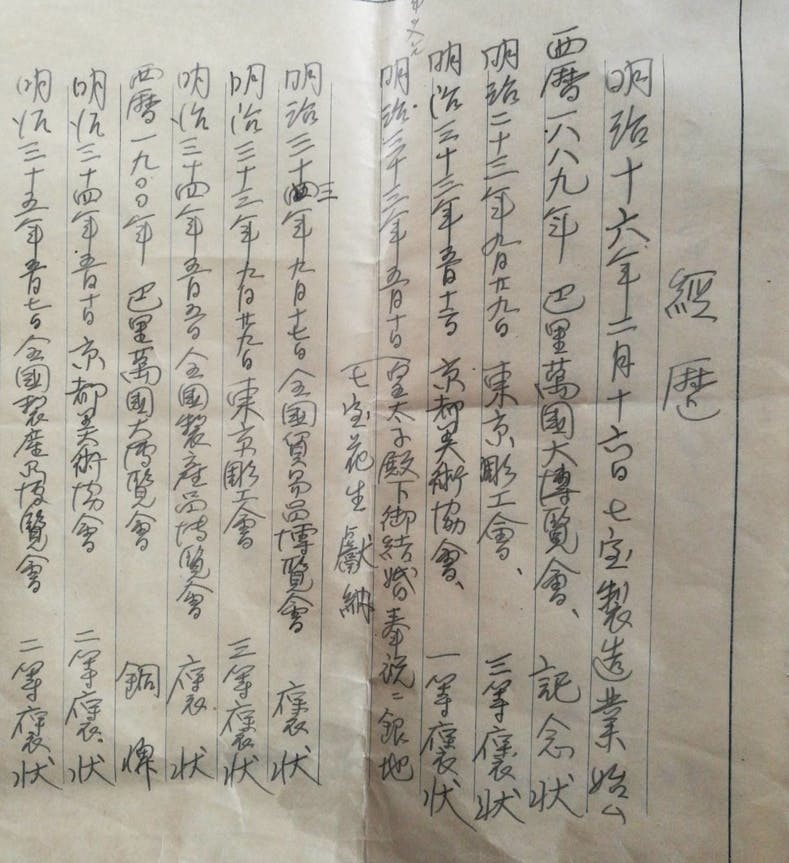 經歴
明治十六年二月十六日 七宝製造業始ム
西暦一八八九年 巴里萬國大博覧會、 記念状
明治二十三年九月廿九日 東京彫工會、 三等褒状
明治三十三年五月十六日 京都美術協會、 一等褒状
明治三十三年五月十日 皇太子殿下御結婚奉祝ニ銀地
七宝花生獻納
明治三十三年九月十七日 全國貿易品博覧會 褒状
明治三十三年九月廿九日 東京彫工會 三等褒状
明治三十四年五月五日 全國製産品博覧會 褒状
西暦一九〇〇年 巴里萬國大博覧會 銅牌
明治三十四年五月十日 京都美術協會 二等褒状
明治三十五年五月七日 全國製産品博覧會 二等褒状